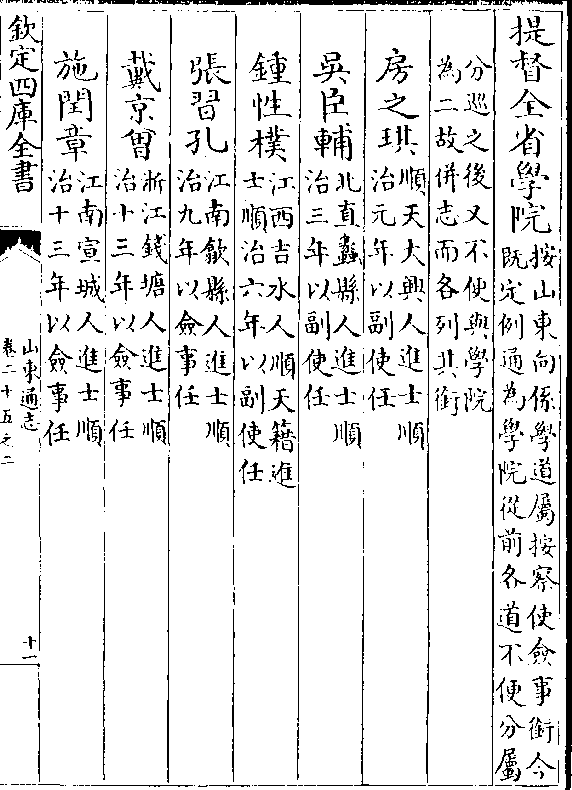 提督全省學院按山東向係學道屬按察使僉事銜今
既定例通為學院從前各道不便分屬
分巡之後又不便與學院
為二故併志而各列其銜
房之琪順天大興人進士順
治元年以副使任
吳臣輔北直蠡縣人進士順
治三年以副使任
鍾性樸江西吉水人順天籍進
士順治六年以副使任
張習孔江南歙縣人進士順
治九年以僉事任
戴京曾浙江錢塘人進士順
治十三年以僉事任
施閏章江南宣城人進士順
治十三年以僉事任
欽定四庫全書
山東通志
卷二十五之二
十一